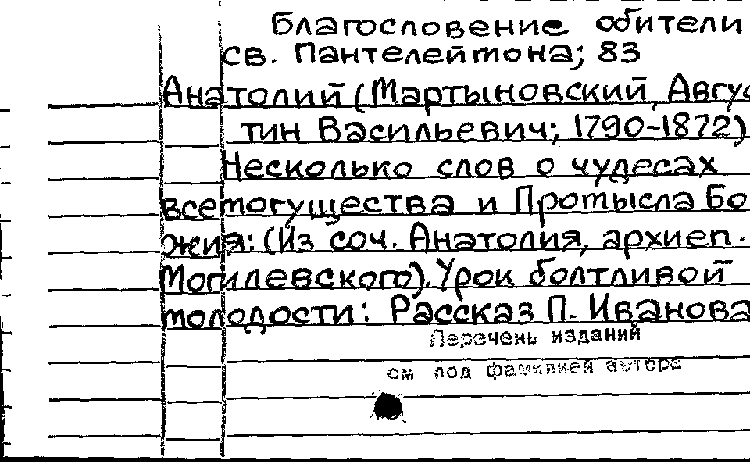 Благословение обители
св. Пантелеймона; 83
Анатолий (Мартыновский, Авгус
тин Васильевич; 1790-1872)
Несколько слов о чудесах
всемогущества и Промысла Бо
жия: (Из соч. Анатолия, архиеп.
Могилевского). Урок болтливой
молодости: Рассказ П. Иванова
Перечень изданий
см под фамилией автора